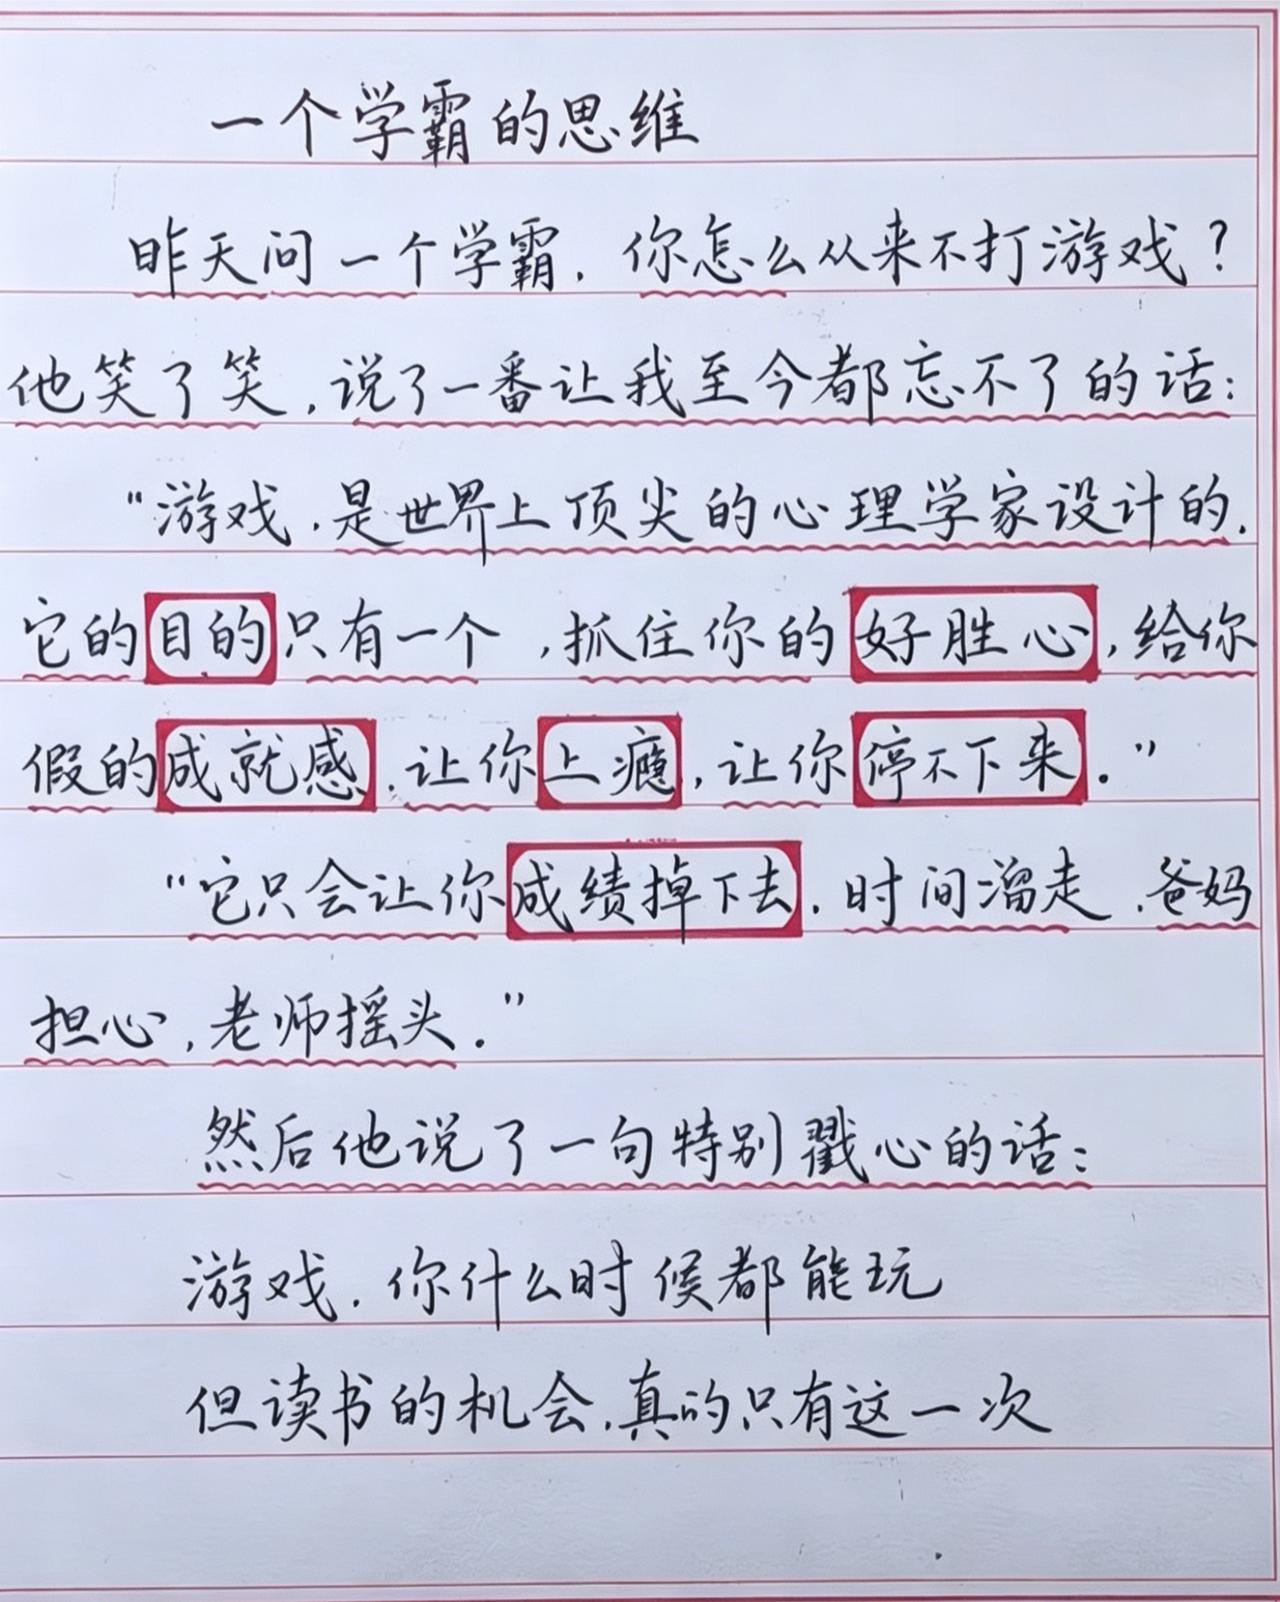 一个学霸的思维
昨天问一个学霸，你怎么从来不打游戏？
他笑了笑，说了一番让我至今都忘不了的话：
“游戏，是世界上顶尖的心理学家设计的，
它的目的只有一个，抓住你的好胜心，给你
假的成就感，让你上瘾，让你停不下来。”
“它只会让你成绩掉下去，时间溜走，爸妈
担心，老师摇头。”
然后他说了一句特别戳心的话：
游戏，你什么时候都能玩
但读书的机会，真的只有这一次